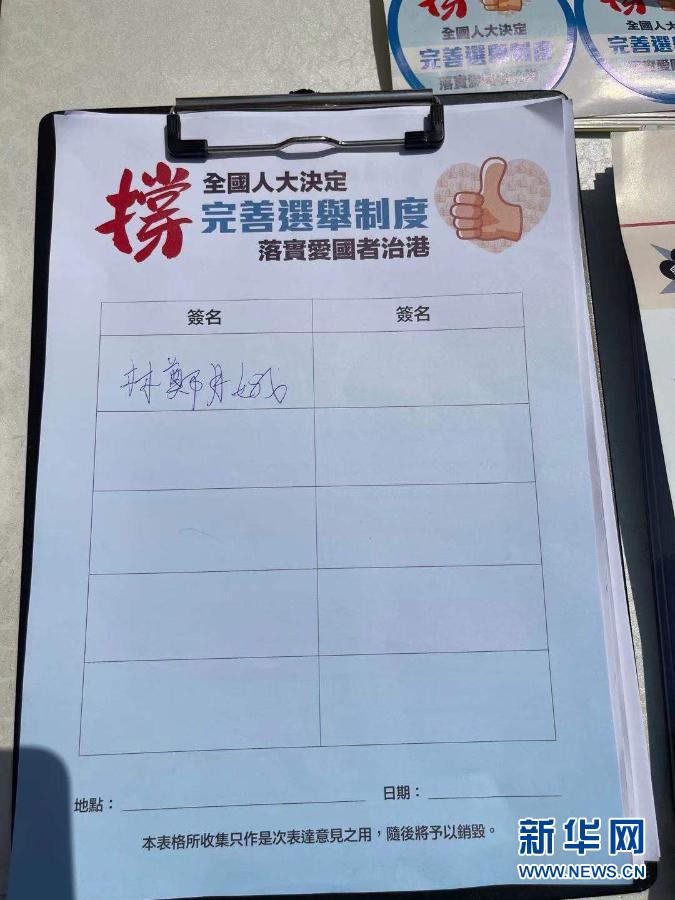 撐
全國人大決定
完善選舉制度
落實愛國者治港
全國人大決定
完善選舉制度
落實愛國者治港
撐
全國人大決定
完善選舉制度
落實愛國者治港
簽名
簽名
林鄭月娥
地點：
日期：
本表格所收集只作是次表達意見之用，隨後將予以銷毀。
新华网
WWW.NEWS.CN